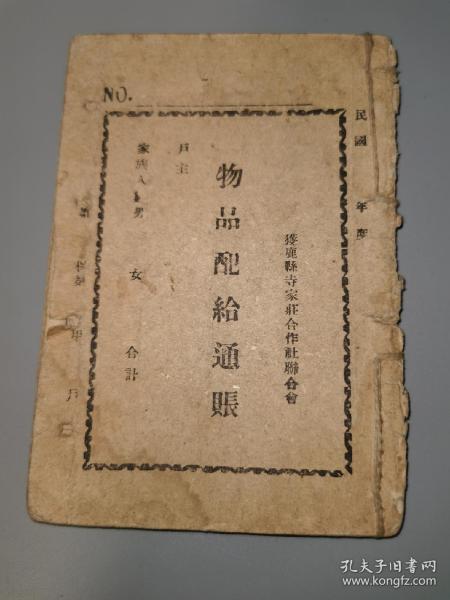 NO.
民國 年度
獲鹿縣寺家莊合作社聯合會
物品配給通賬
戶主
家族人 男 女 合計
孔夫子旧书网
www.kongfz.com